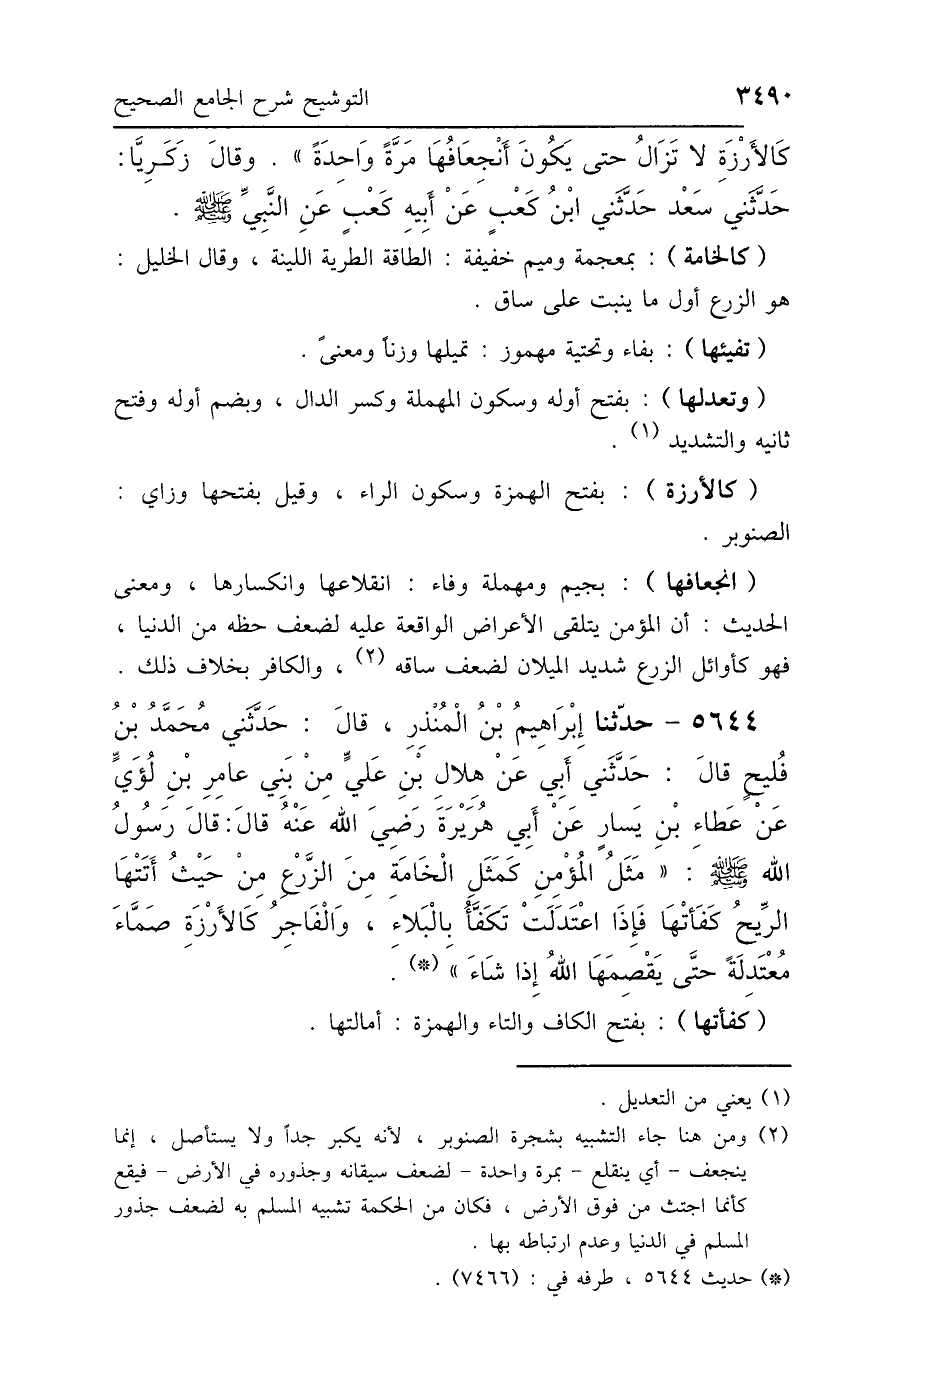 ٣٤٩٠ التوشيح شرح الجامع الصحيح
كَالأَرْزَةِ لا تَزَالُ حتى يَكُونَ أنْجعَافُهَا مَرَّةً وَاحِدَةً » . وقالَ زَكَـرِيَّا :
حَدَّثَني سَعْد حَدَّثَني ابْنُ كَعْبٍ عَنْ أَبِيهِ كَعْبٍ عَنِ النَّبِيِّ ﷺ .
( كالخامة ) : بمعجمة وميم خفيفة : الطاقة الطرية اللينة ، وقال الخليل :
هو الزرع أول ما ينبت على ساق .
( تفيئها ) : بفاء وتحتية مهموز : تميلها وزناً ومعنىً .
( وتعدلها ) : بفتح أوله وسكون المهملة وكسر الدال ، وبضم أوله وفتح
ثانيه والتشديد (١) .
( كالأرزة ) : بفتح الهمزة وسكون الراء ، وقيل بفتحها وزاي :
الصنوبر .
( انجعافها ) : بجيم ومهملة وفاء : انقلاعها وانكسارها ، ومعنى
الحديث : أن المؤمن يتلقى الأعراض الواقعة عليه لضعف حظه من الدنيا ،
فهو كأوائل الزرع شديد الميلان لضعف ساقه (٢) ، والكافر بخلاف ذلك .
٥٦٤٤ - حدّثنا إِبْرَاهِيمُ بْنُ الْمُنْذِرِ ، قالَ : حَدَّثَني مُحَمَّدُ بْنُ
فُلَيحٍ قالَ : حَدَّثَني أَبي عَنْ هِلالِ بْنِ عَليٍّ مِنْ بَنِي عامِرِ بْنِ لُؤَيٍّ
عَنْ عَطَاءِ بْنِ يَسارٍ عَنْ أَبي هُرَيْرَةَ رَضِيَ الله عَنْهُ قالَ: قالَ رَسُولُ
الله ﷺ : « مَثَلُ الْمُؤْمِنِ كَمَثَلِ الْخَامَةِ مِنَ الزَّرْعِ مِنْ حَيْثُ أَتَتْهَا
الرِّيحُ كَفَأَتْهَا فَإِذَا اعْتَدَلَتْ تَكَفَّأُ بِالْبَلاءِ ، وَالْفَاجِرُ كَالأَرْزَةِ صَمَّاءَ
مُعْتَدِلَةً حتَّى يَقْصِمَهَا اللهُ إِذا شَاءَ » (*) .
( كفأتها ) : بفتح الكاف والتاء والهمزة : أمالتها .
(١) يعني من التعديل .
(٢) ومن هنا جاء التشبيه بشجرة الصنوبر ، لأنه يكبر جداً ولا يستأصل ، إنما
ينجعف - أي ينقلع - بمرة واحدة - لضعف سيقانه وجذوره في الأرض - فيقع
كأنما اجتث من فوق الأرض ، فكان من الحكمة تشبيه المسلم به لضعف جذور
المسلم في الدنيا وعدم ارتباطه بها .
(*) حديث ٥٦٤٤ ، طرفه في : (٧٤٦٦) .